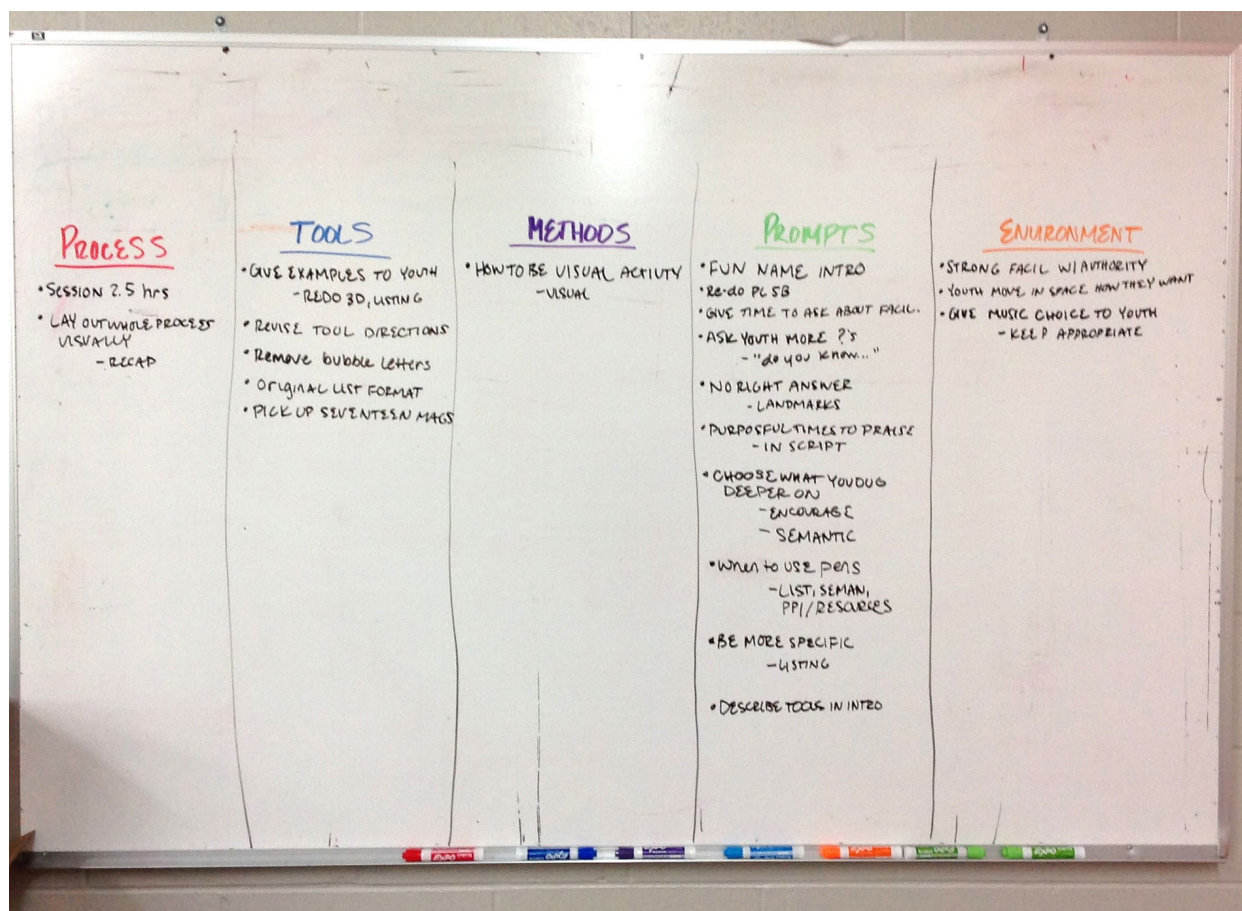 PROCESS
• SESSION 2.5 hrs
• LAY OUT WHOLE PROCESS
VISUALLY
- RECAP
TOOLS
• GIVE EXAMPLES TO YOUTH
- REDO 3D, LISTING
• REVISE TOOL DIRECTIONS
• Remove bubble letters
• Original LIST FORMAT
• PICK UP SEVENTEEN MAGS
METHODS
• HOW TO BE VISUAL ACTIVITY
- VISUAL
PROMPTS
• FUN NAME INTRO
• Re-do PG 5B
• GIVE TIME TO ASK ABOUT FACIL.
• ASK YOUTH MORE ?'s
- "do you know..."
• NO RIGHT ANSWER
- LANDMARKS
• PURPOSFUL TIMES TO PRAISE
- IN SCRIPT
• CHOOSE WHAT YOU DUG
DEEPER ON
- ENCOURAGE
- SEMANTIC
• When to use pens
- LIST, SEMAN,
PPI/RESOURCES
• BE MORE SPECIFIC
- LISTING
• DESCRIBE TOOLS IN INTRO
ENVIRONMENT
• STRONG FACIL W/ AUTHORITY
• YOUTH MOVE IN SPACE HOW THEY WANT
• GIVE MUSIC CHOICE TO YOUTH
- KEEP APPROPRIATE
EXPO
EXPO
EXPO
EXPO
EXPO
EXPO
EXPO